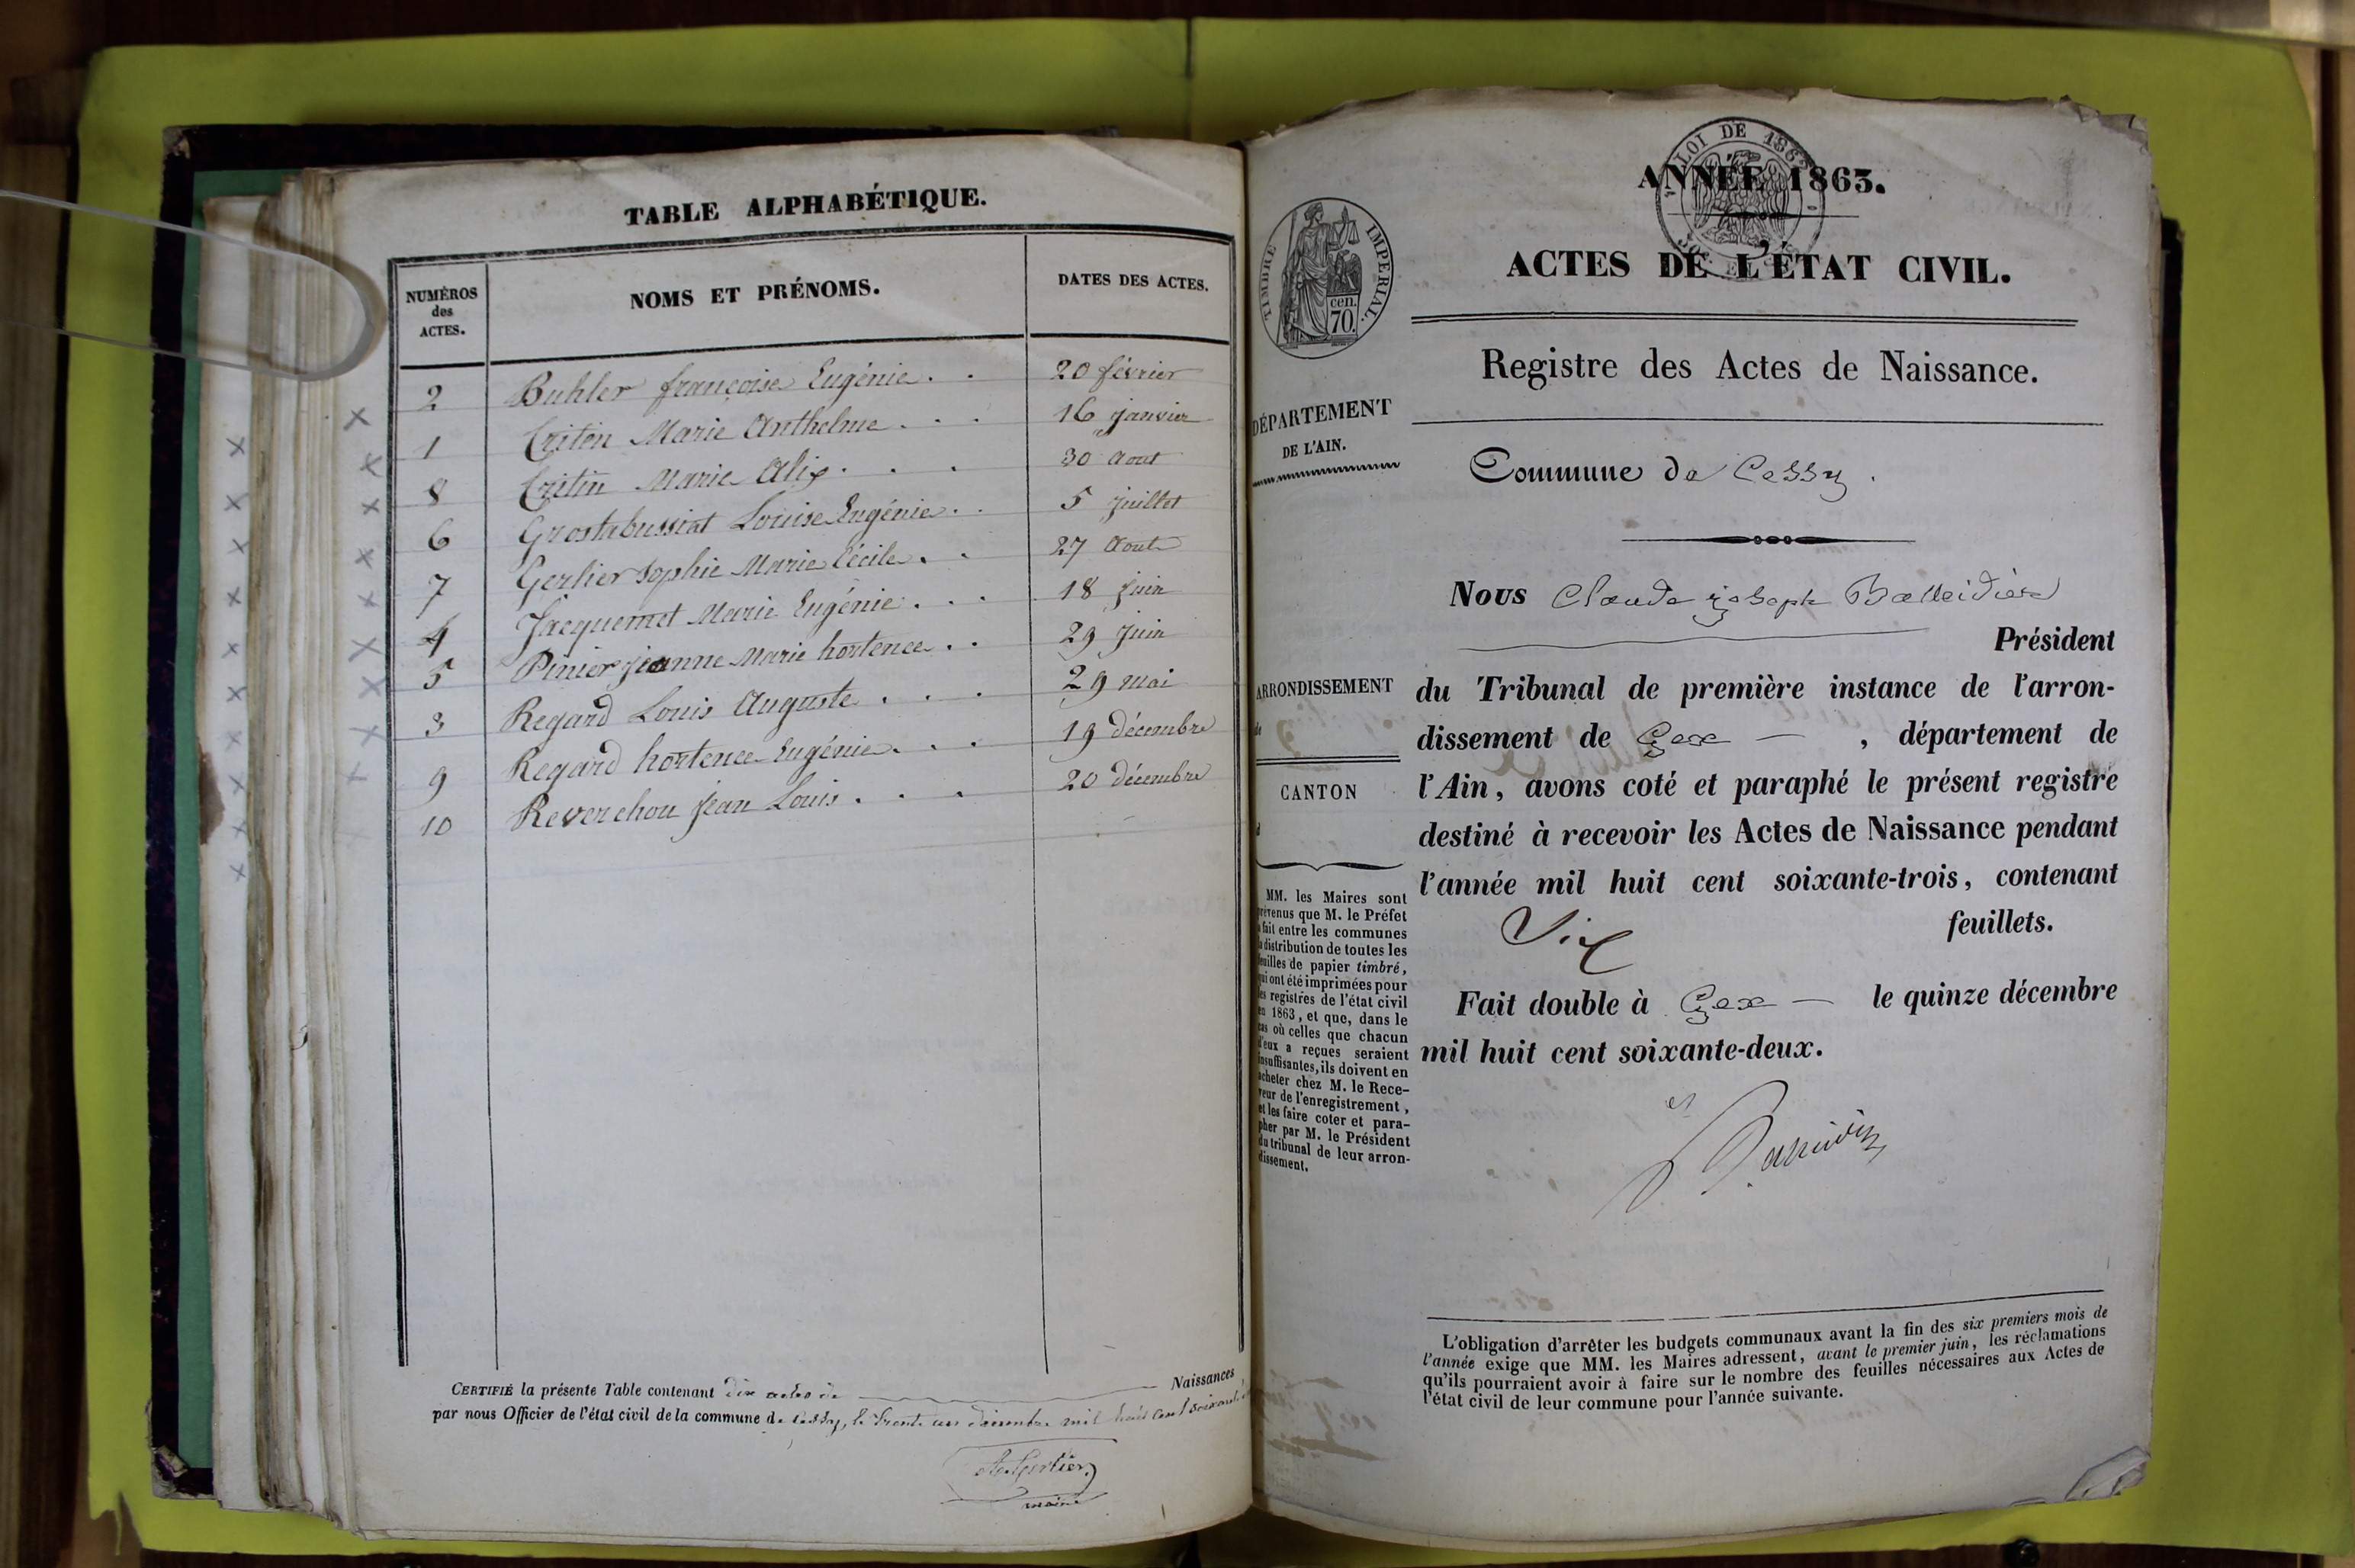 TABLE ALPHABÉTIQUE.
NUMÉROS
des
ACTES.
NOMS ET PRÉNOMS.
DATES DES ACTES.
2 Buhler françoise Eugénie . . 20 février
1 Critin Marie Anthelme . . . 16 janvier
8 Critin Marie Alix . . . 30 Aout
6 Grostabussiat Louise Eugénie . . 5 juillet
7 Gerlier Sophie Marie Cécile . . 27 Aout
4 Jacquemet Marie Eugénie . . . 18 juin
5 Pinier jeanne Marie hortence . . 29 juin
3 Regard Louis Auguste . . . 29 mai
9 Regard hortence Eugénie . . . 19 décembre
10 Reverchon Jean Louis . . . 20 décembre
CERTIFIÉ la présente Table contenant dix actes de Naissances
par nous Officier de l'état civil de la commune de Cessy, le trente un décembre mil huit cent soixante
Gerlier
maire
LOI DE 1862
ANNÉE 1863.
ACTES DE L'ÉTAT CIVIL.
TIMBRE IMPÉRIAL.
cen.
70.
Registre des Actes de Naissance.
DÉPARTEMENT
DE L'AIN.
Commune de Cessy.
Nous Claude joseph Balleidier
Président
ARRONDISSEMENT
de
du Tribunal de première instance de l'arron-
dissement de Gex — , département de
CANTON
d
l'Ain, avons coté et paraphé le présent registre
destiné à recevoir les Actes de Naissance pendant
l'année mil huit cent soixante-trois, contenant
Six feuillets.
Fait double à Gex — le quinze décembre
mil huit cent soixante-deux.
MM. les Maires sont
prévenus que M. le Préfet
a fait entre les communes
la distribution de toutes les
feuilles de papier timbré,
qui ont été imprimées pour
les registres de l'état civil
en 1863, et que, dans le
cas où celles que chacun
d'eux a reçues seraient
insuffisantes, ils doivent en
acheter chez M. le Rece-
veur de l'enregistrement,
et les faire coter et para-
pher par M. le Président
du tribunal de leur arron-
dissement.
L'obligation d'arrêter les budgets communaux avant la fin des six premiers mois de
l'année exige que MM. les Maires adressent, avant le premier juin, les réclamations
qu'ils pourraient avoir à faire sur le nombre des feuilles nécessaires aux Actes de
l'état civil de leur commune pour l'année suivante.